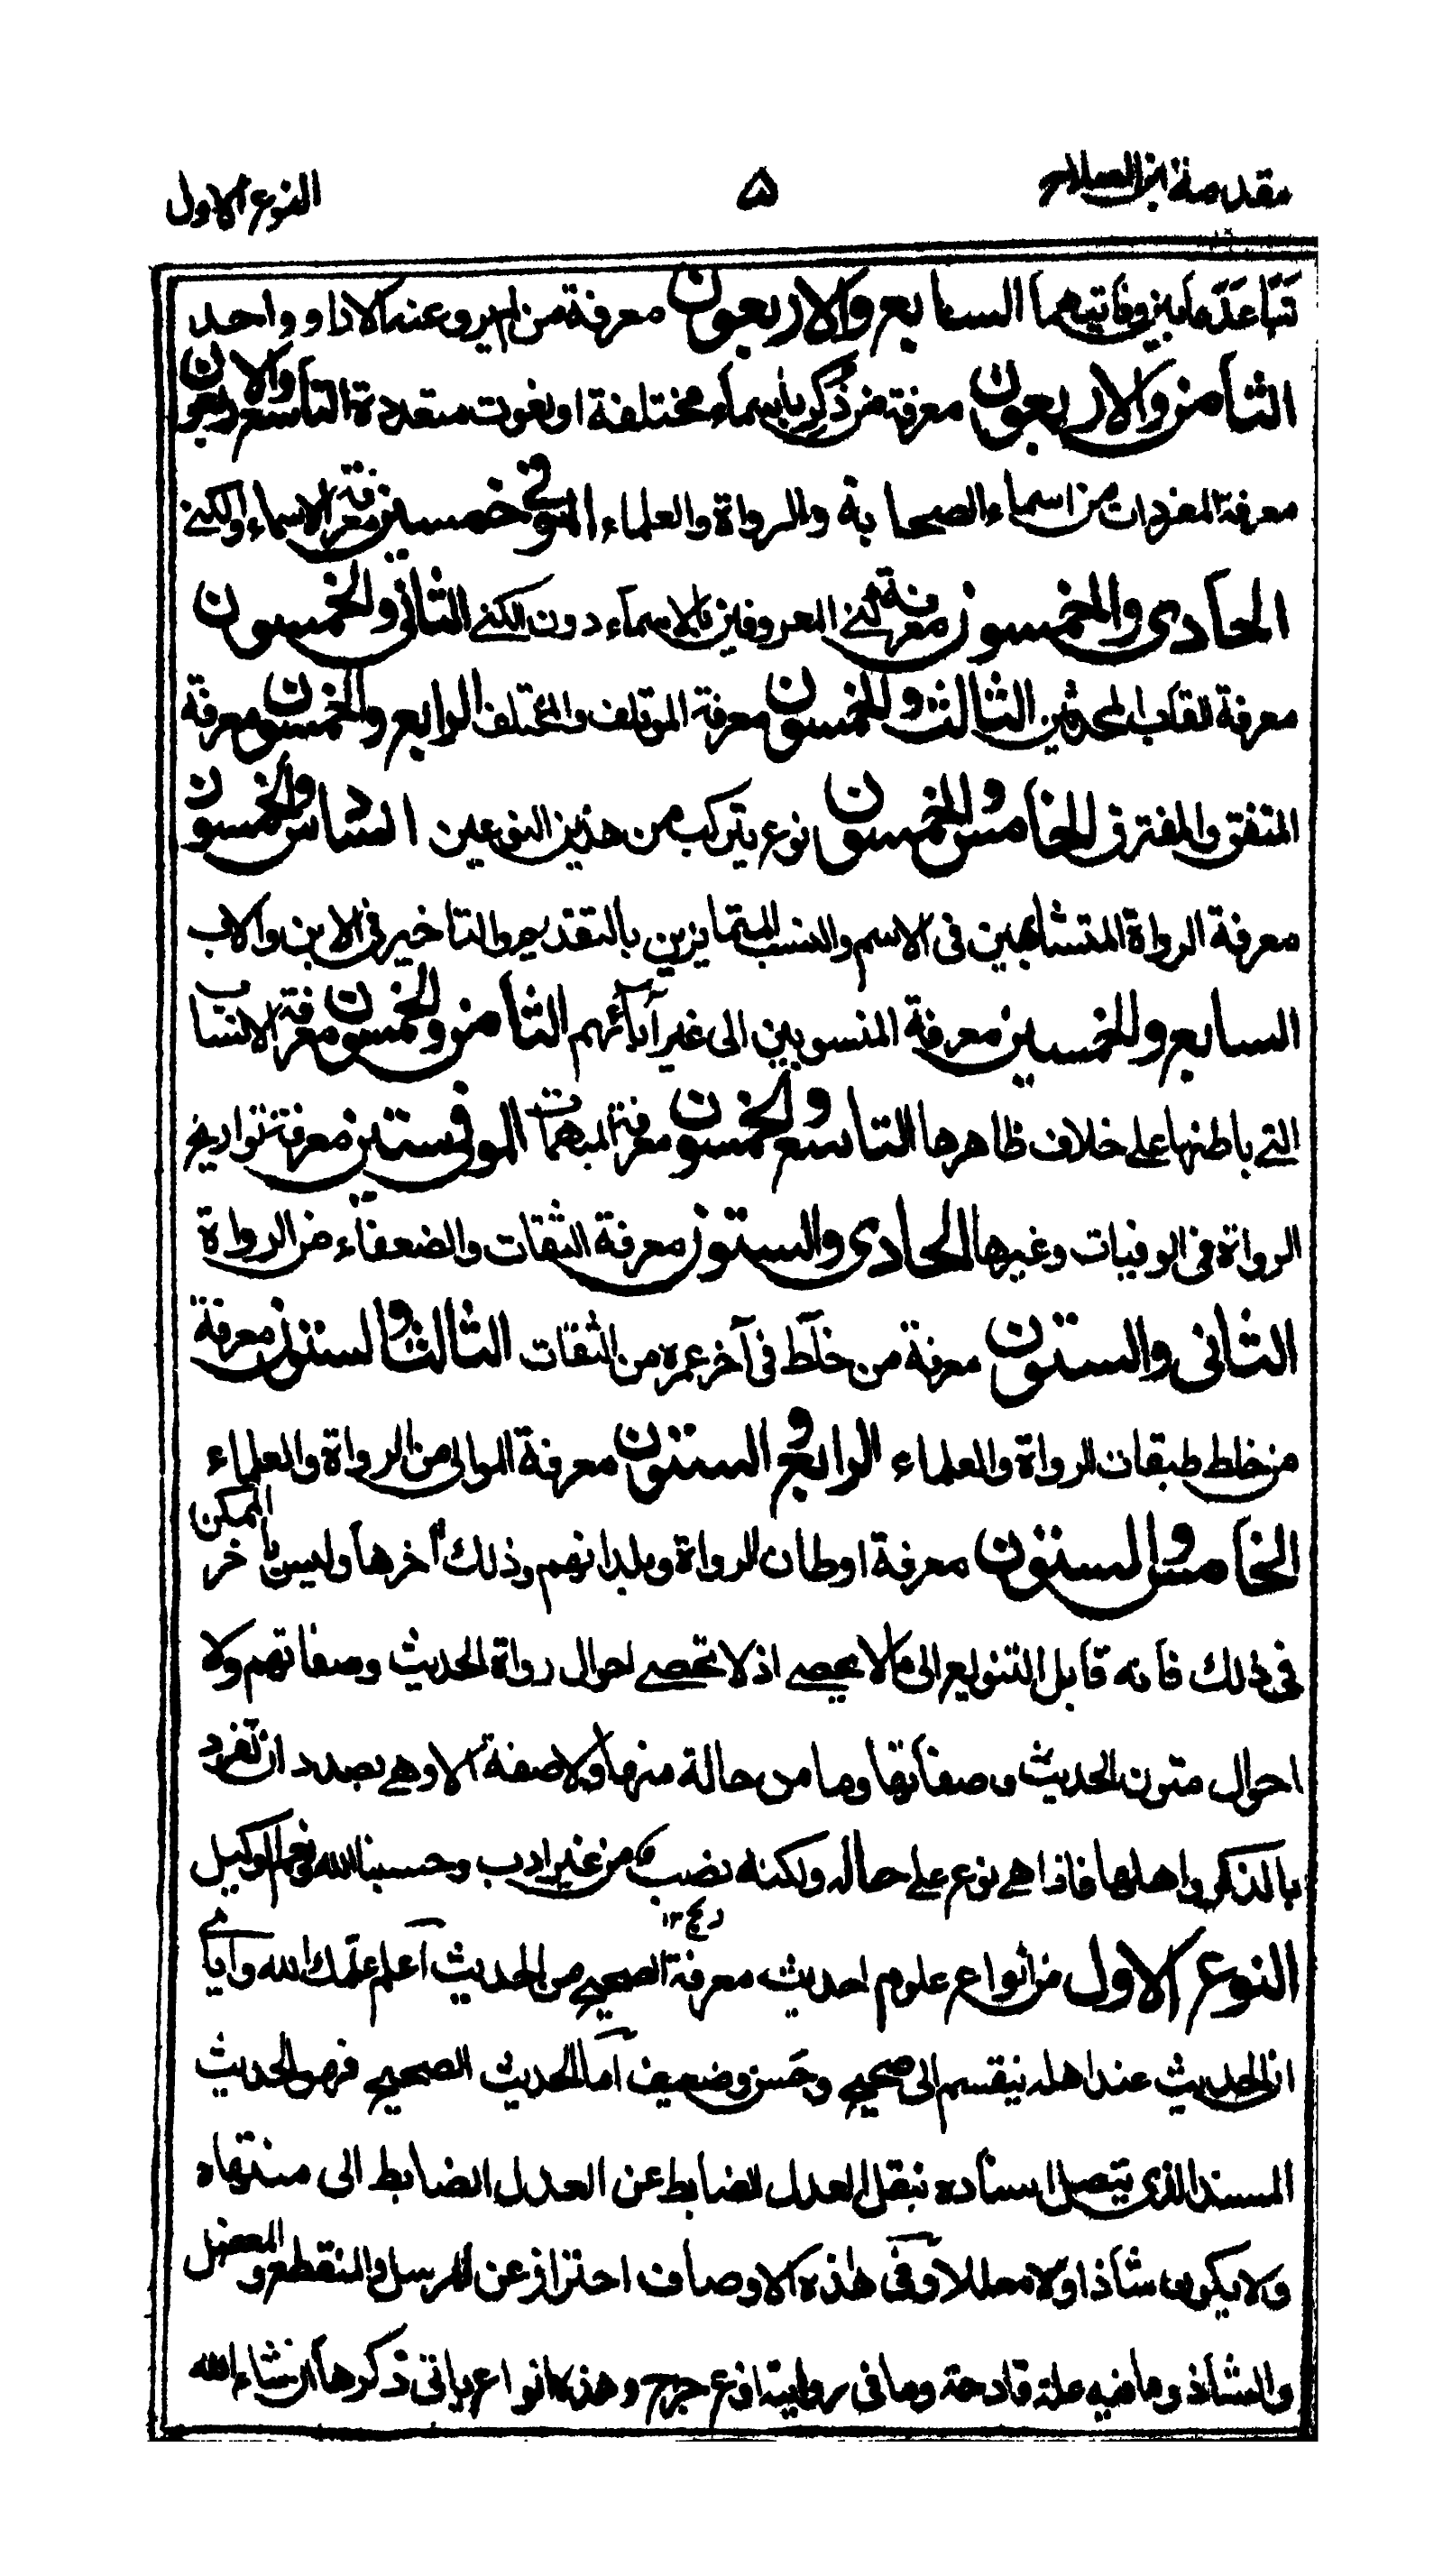 مقدمة ابن الصلاح ۵ النوع الاول
تباعد ما بين وفاتيهما السابع والاربعون معرفة من لم يرو عنه الا راو واحد
الثامن والاربعون معرفة من ذكر باسماء مختلفة او نعوت متعددة التاسع والاربعون
معرفة المفردات من اسماء الصحابة والرواة والعلماء الموفي خمسين معرفة الاسماء والكنى
الحادى والخمسون معرفة كنى المعروفين بالاسماء دون الكنى الثانى والخمسون
معرفة القاب المحدثين الثالث والخمسون معرفة الموتلف والمختلف الرابع والخمسون معرفة
المتفق والمفترق الخامس والخمسون نوع يتركب من هذين النوعين السادس والخمسون
معرفة الرواة المتشابهين فى الاسم والنسب المتمايزين بالتقديم والتاخير فى الابن والاب
السابع والخمسين معرفة المنسوبين الى غير آبائهم الثامن والخمسون معرفة الانساب
التى باطنها على خلاف ظاهرها التاسع والخمسون معرفة المبهمات الموفي ستين معرفة تواريخ
الرواة فى الوفيات وغيرها الحادى والستون معرفة الثقات والضعفاء من الرواة
الثانى والستون معرفة من خلط فى آخر عمره من الثقات الثالث والستون معرفة
من خلط طبقات الرواة والعلماء الرابع والستون معرفة الموالى من الرواة والعلماء
الخامس والستون معرفة اوطان الرواة وبلدانهم وذلك آخرها وليس بآخر الممكن
فى ذلك فانه قابل التنويع الى مالا يحصى اذ لا تحصى احوال رواة الحديث وصفاتهم ولا
احوال متون الحديث وصفاتها وما من حالة منها ولا صفة الا وهى بصدد ان تفرد
بالذكر واهلها فاذا هى نوع على حياله ولكنه نصب من غير ارب وحسبنا الله ونعم الوكيل
النوع الاول من انواع علوم احديث معرفة الصحيح من الحديث اعلم علمك الله واياى
ان الحديث عند اهله ينقسم الى صحيح وحسن وضعيف اما الحديث الصحيح فهو الحديث
المسند الذى يتصل اسناده بنقل العدل الضابط عن العدل الضابط الى منتهاه
ولا يكون شاذا ولا معللا وفى هذه الاوصاف احتراز عن المرسل والمنقطع والمعضل
والشاذ وما فيه علة قادحة وما فى روايته نوع جرح وهذه انواع ياتى ذكرها ان شاء الله